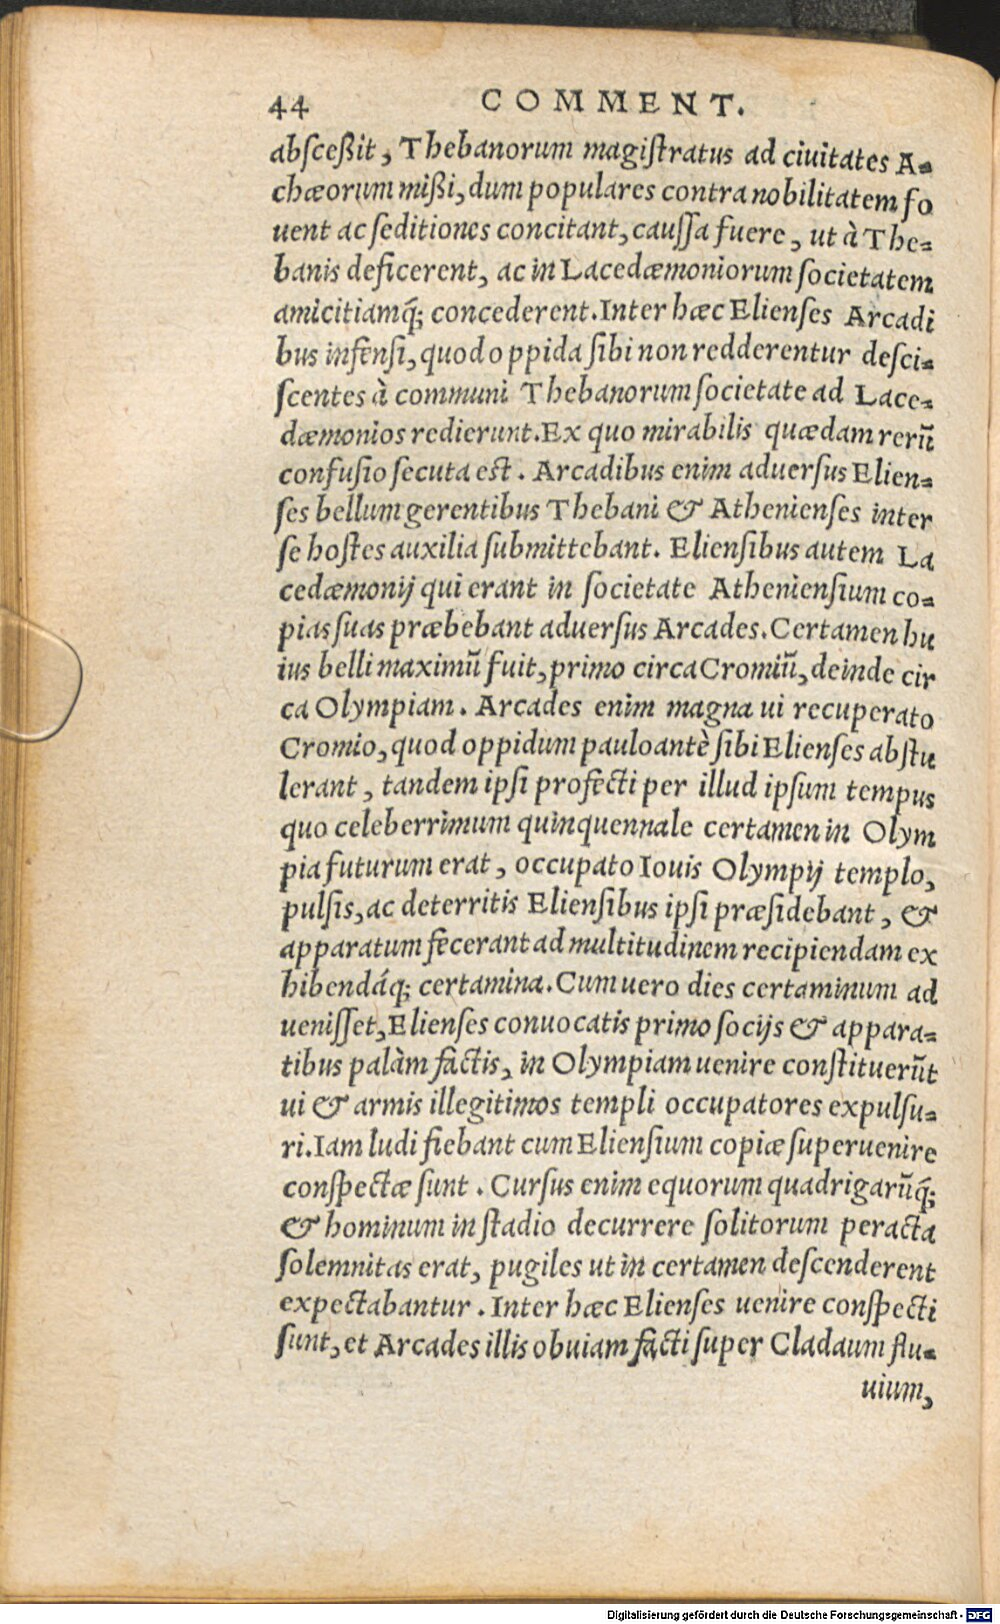 44 COMMENT.
abſceßit, Thebanorum magiſtratus ad ciuitates A-
chæorum mißi, dum populares contra nobilitatem fo
uent ac ſeditiones concitant, cauſſa fuere, ut à The-
banis deficerent, ac in Lacedæmoniorum ſocietatem
amicitiamq́; concederent. Inter hæc Elienſes Arcadi
bus infenſi, quod oppida ſibi non redderentur deſci-
ſcentes à communi Thebanorum ſocietate ad Lace-
dæmonios redierunt. Ex quo mirabilis quædam rerũ
confuſio ſecuta eſt. Arcadibus enim aduerſus Elien-
ſes bellum gerentibus Thebani & Athenienſes inter
ſe hoſtes auxilia ſubmittebant. Elienſibus autem La
cedæmonij qui erant in ſocietate Athenienſium co-
pias ſuas præbebant aduerſus Arcades. Certamen hu
ius belli maximũ fuit, primo circa Cromiũ, deinde cir
ca Olympiam. Arcades enim magna ui recuperato
Cromio, quod oppidum pauloantè ſibi Elienſes abſtu
lerant, tandem ipſi profecti per illud ipſum tempus
quo celeberrimum quinquennale certamen in Olym
pia futurum erat, occupato Iouis Olympij templo,
pulſis, ac deterritis Elienſibus ipſi præſidebant, &
apparatum fecerant ad multitudinem recipiendam ex
hibendáq; certamina. Cum uero dies certaminum ad
ueniſſet, Elienſes conuocatis primo ſocijs & appara-
tibus palàm factis, in Olympiam uenire conſtituerũt
ui & armis illegitimos templi occupatores expulſu-
ri. Iam ludi fiebant cum Elienſium copiæ ſuperuenire
conſpectæ ſunt. Curſus enim equorum quadrigarũq́;
& hominum in ſtadio decurrere ſolitorum peracta
ſolemnitas erat, pugiles ut in certamen deſcenderent
expectabantur. Inter hæc Elienſes uenire conſpecti
ſunt, et Arcades illis obuiam facti ſuper Cladaum flu-
uium,
Digitalisierung gefördert durch die Deutsche Forschungsgemeinschaft - DFG